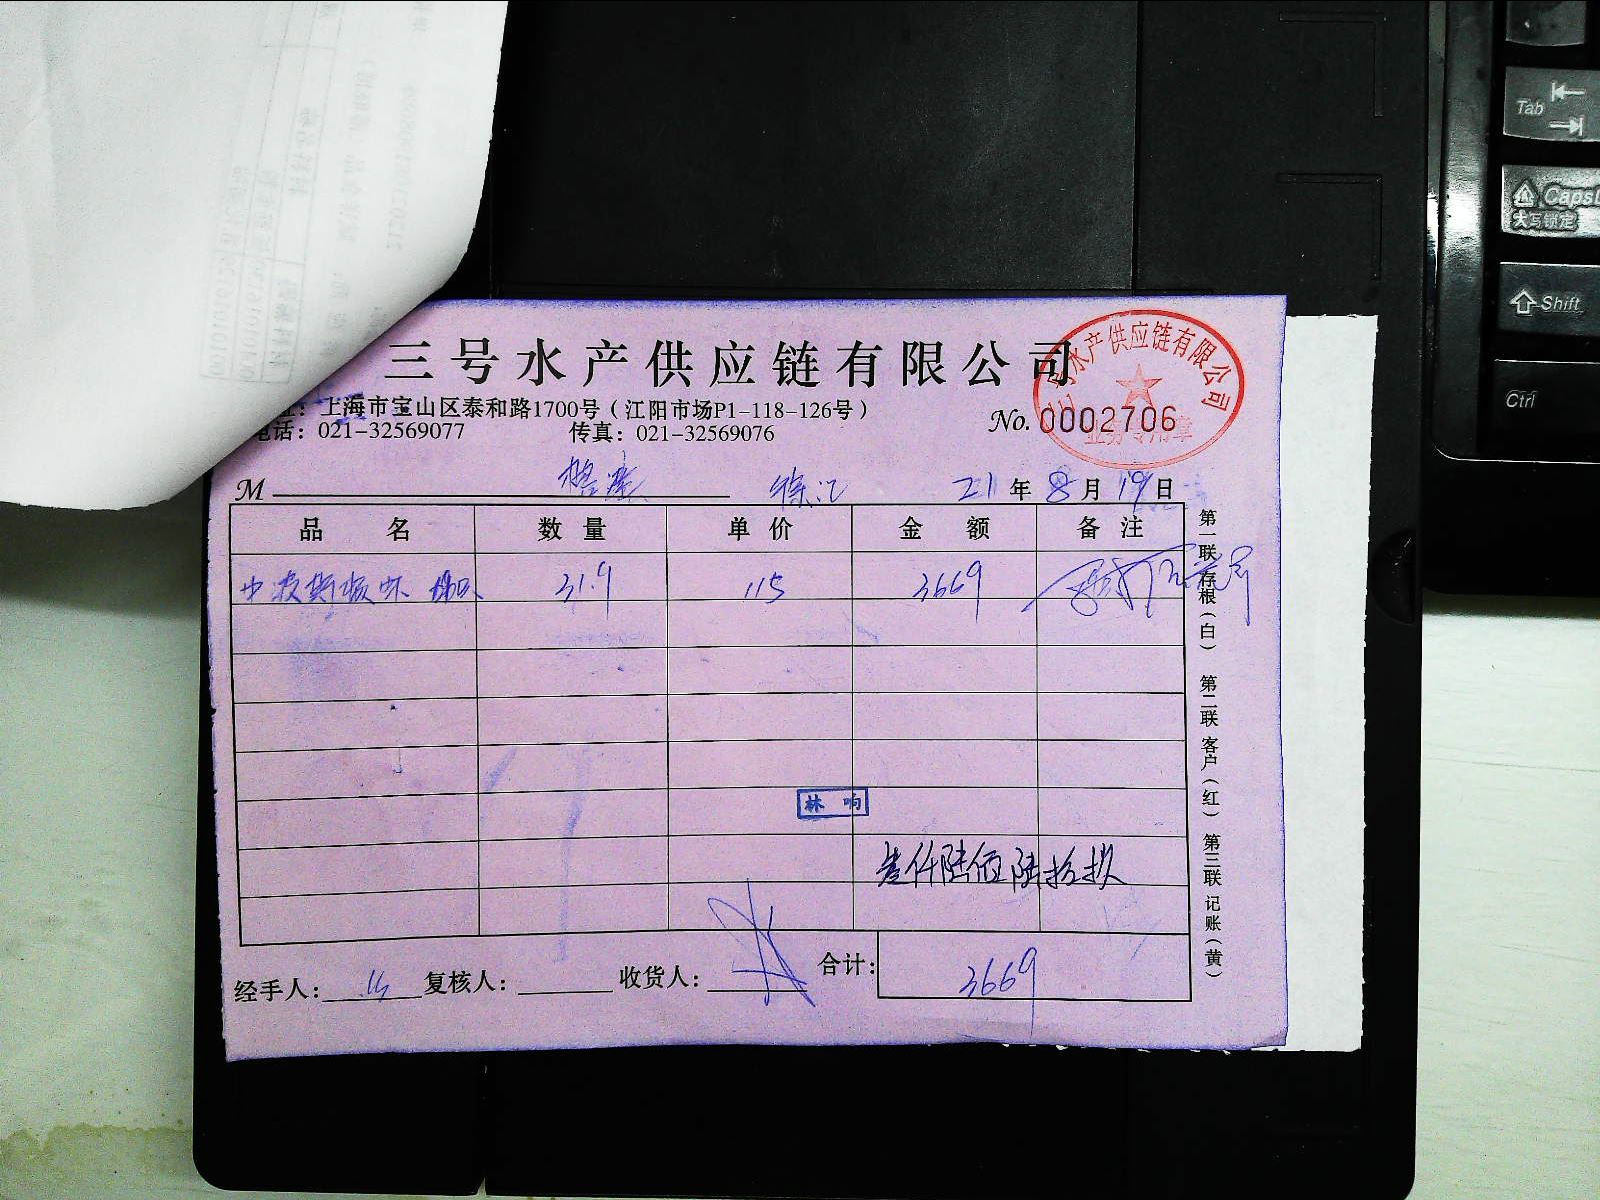 三号水产供应链有限公司
址：上海市宝山区泰和路1700号（江阳市场P1-118-126号）
电话：021-32569077 传真：021-32569076
No. 0002706
三号水产供应链有限公司
业务专用章
M 徐汇 21年8月19日
品名 数量 单价 金额 备注
31.9 115 3669
林 响
叁仟陆佰陆拾玖
经手人： 复核人： 收货人： 合计： 3669
第一联 存根（白） 第二联 客户（红） 第三联 记账（黄）
Tab
CapsL
大写锁定
Shift
Ctrl